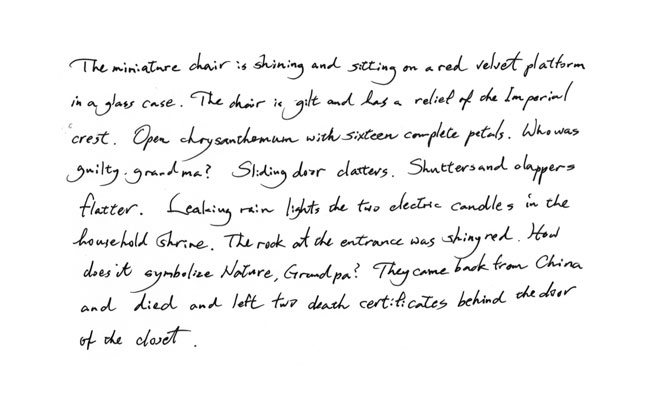 The miniature chair is shining and sitting on a red velvet platform
in a glass case. The chair is gilt and has a relief of the Imperial
crest. Open chrysanthemum with sixteen complete petals. Who was
guilty. grandma? Sliding door clatters. Shutters and clappers
flatter. Leaking rain lights the two electric candles in the
household shrine. The rock at the entrance was shiny red. How
does it symbolize Nature, Grandpa? They came back from China
and died and left two death certificates behind the door
of the closet.